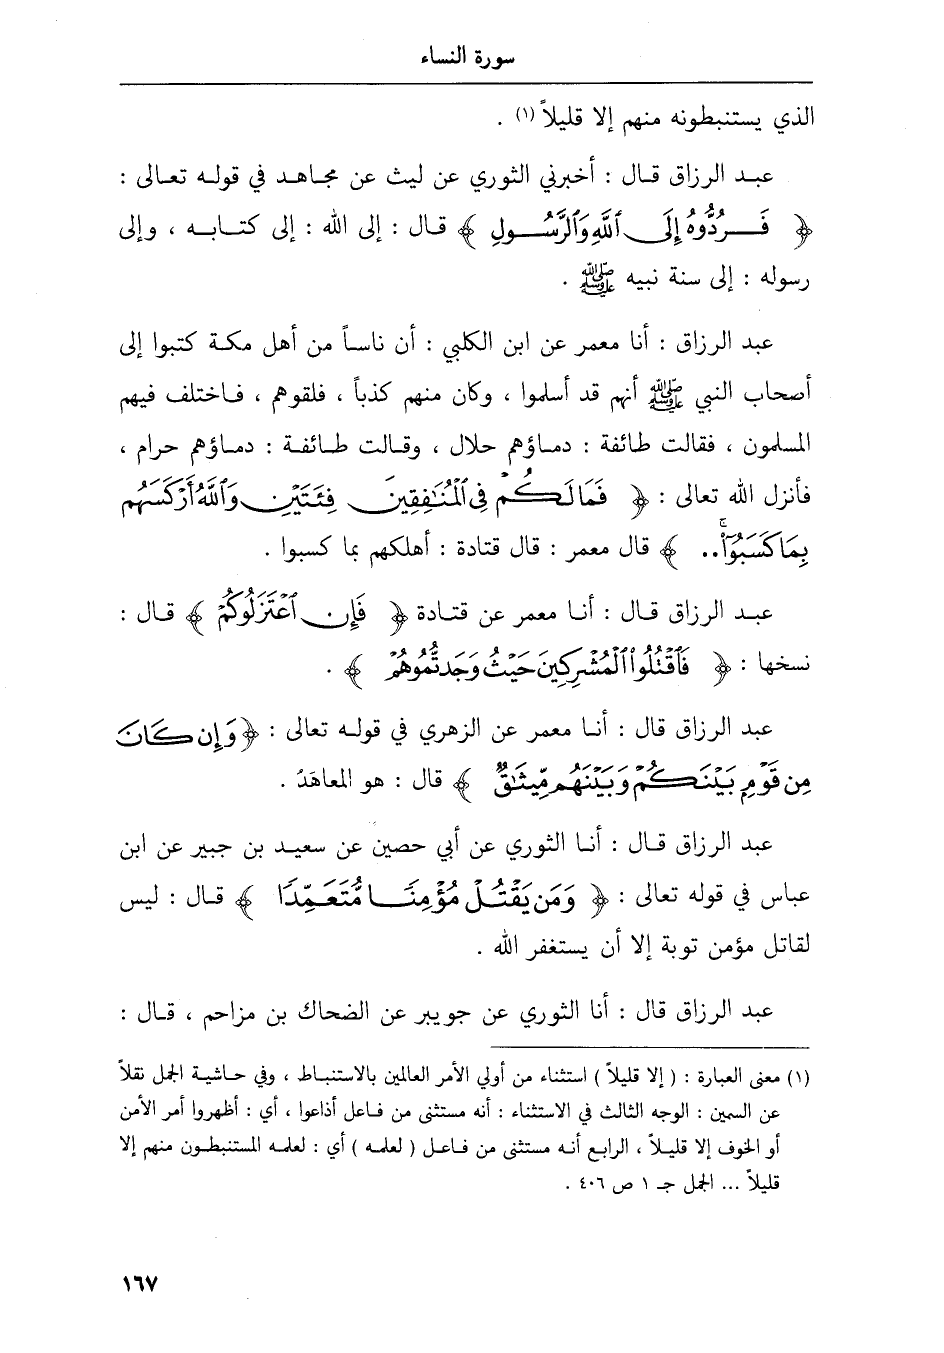 سورة النساء
الذي يستنبطونه منهم إلا قليلاً (١) .
عبد الرزاق قال : أخبرني الثوري عن ليث عن مجاهد في قوله تعالى :
﴿ فَرُدُّوهُ إِلَى ٱللَّهِ وَٱلرَّسُولِ ﴾ قال : إلى الله : إلى كتابه ، وإلى
رسوله : إلى سنة نبيه ﷺ .
عبد الرزاق : أنا معمر عن ابن الكلبي : أن ناساً من أهل مكة كتبوا إلى
أصحاب النبي ﷺ أنهم قد أسلموا ، وكان منهم كذباً ، فلقوهم ، فاختلف فيهم
المسلمون ، فقالت طائفة : دماؤهم حلال ، وقالت طائفة : دماؤهم حرام ،
فأنزل الله تعالى : ﴿ فَمَا لَكُمْ فِى ٱلْمُنَٰفِقِينَ فِئَتَيْنِ وَٱللَّهُ أَرْكَسَهُم
بِمَا كَسَبُوٓا۟ۚ .. ﴾ قال معمر : قال قتادة : أهلكهم بما كسبوا .
عبد الرزاق قال : أنا معمر عن قتادة ﴿ فَإِنِ ٱعْتَزَلُوكُمْ ﴾ قال :
نسخها : ﴿ فَٱقْتُلُوا۟ ٱلْمُشْرِكِينَ حَيْثُ وَجَدتُّمُوهُمْ ﴾ .
عبد الرزاق قال : أنا معمر عن الزهري في قوله تعالى : ﴿ وَإِن كَانَ
مِن قَوْمٍ بَيْنَكُمْ وَبَيْنَهُم مِّيثَٰقٌ ﴾ قال : هو المعاهَدُ .
عبد الرزاق قال : أنا الثوري عن أبي حصين عن سعيد بن جبير عن ابن
عباس في قوله تعالى : ﴿ وَمَن يَقْتُلْ مُؤْمِنًا مُّتَعَمِّدًا ﴾ قال : ليس
لقاتل مؤمن توبة إلا أن يستغفر الله .
عبد الرزاق قال : أنا الثوري عن جويبر عن الضحاك بن مزاحم ، قال :
(١) معنى العبارة : ( إلا قليلاً ) استثناء من أولي الأمر العالمين بالاستنباط ، وفي حاشية الجمل نقلاً
عن السمين : الوجه الثالث في الاستثناء : أنه مستثنى من فاعل أذاعوا ، أي : أظهروا أمر الأمن
أو الخوف إلا قليلاً ، الرابع أنه مستثنى من فاعل ( لعلمه ) أي : لعلمه المستنبطون منهم إلا
قليلاً ... الجمل جـ ١ ص ٤٠٦ .
١٦٧